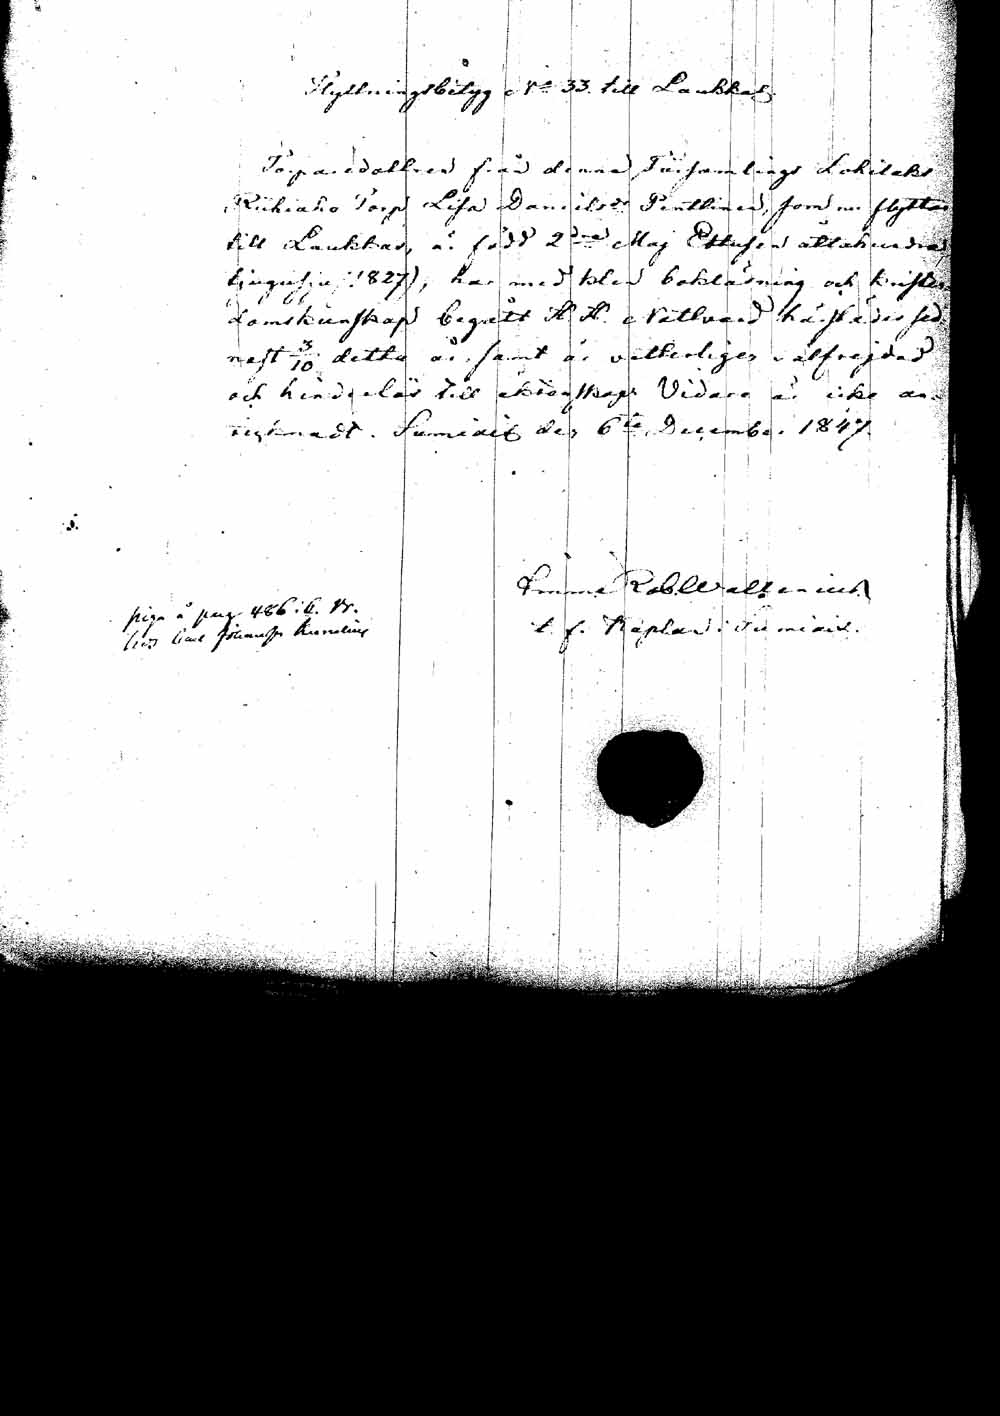 Flyttningsbetyg No 33. till Laukkas
Torparedottren från denna Församlings Lokilaks
Riihiaho Torp Lisa Danielsdr Penttinen, som nu flyttar
till Laukkas, är född 2dra Maj Ettusen åttahundra
tjugusju (1827), har med klen bokläsning och kristen-
domskunskap begått H. H. Nattvard härstädes sed-
nast 3/10 detta år, samt är vetterligen välfrejdad
och hinderlös till äktenskap. Vidare är icke an-
tecknadt. Sumiais den 6te December 1847.
Rob. Walleninh
t. f. Kaplan i Sumiais.
piga å pag. 486 i
hos Carl Johansson